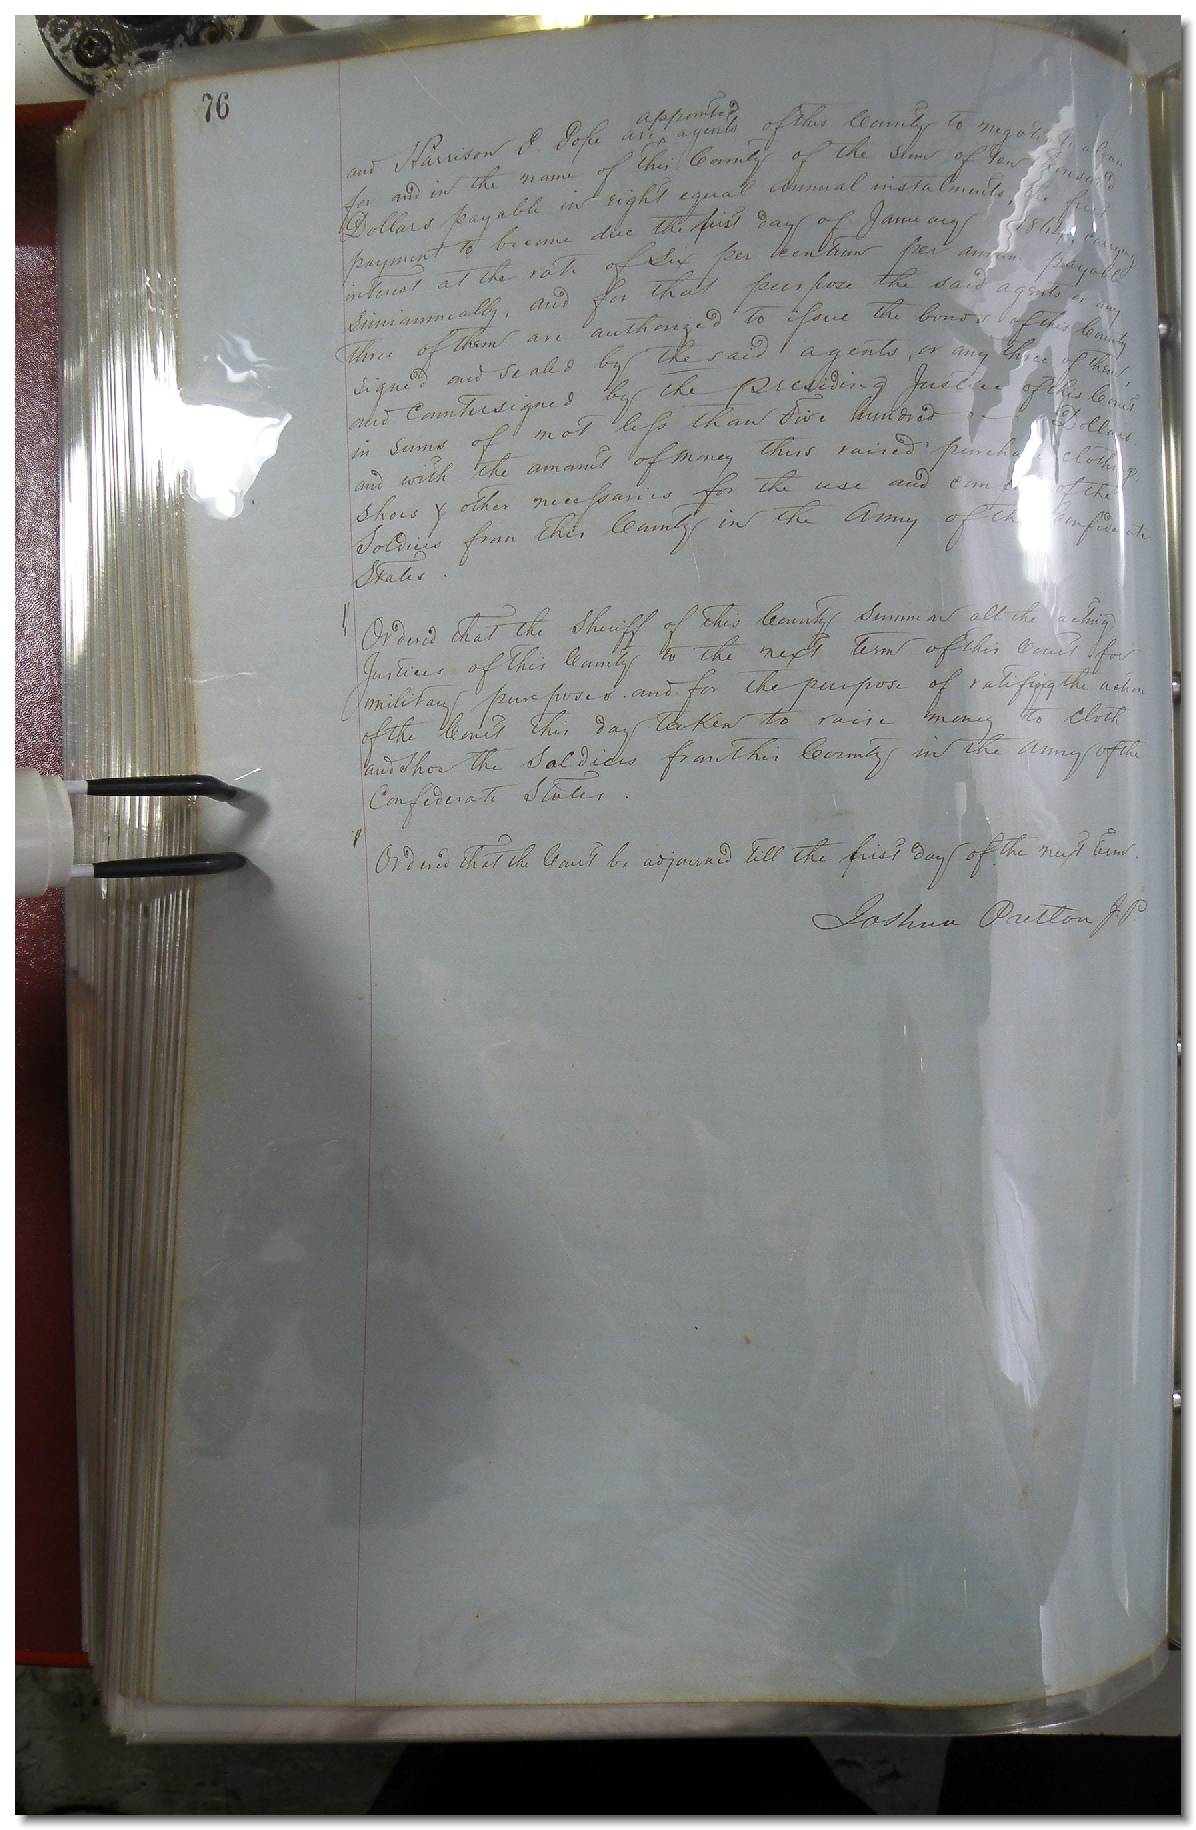 76
appointed
and Harrison P. Pope are agents of this County to negotiate a loan
for and in the name of this County of the sum of ten thousand
Dollars payable in eight equal annual instalments, the first
payment to become due the first day of January carrying
interest at the rate of Six per centum per annum payable
Simiannually, and for that purpose the said agents or any
three of them are authorized to issue the bonds of this County
signed and sealed by the said agents, or any three of them,
and Countersigned by the Presiding Justice of this Court
in sums of not less than five hundred Dollars
and with the amount of money thus raised purchase clothing,
Shoes & other necessaries for the use and comfort of the
Soldiers from this County in the Army of the Confederate
States.
Ordered that the Sheriff of this County Summon all the acting
Justices of this County to the next Term of this Court for
military purposes and for the purpose of ratifing the action
of the Court this day taken to raise money to cloth
and Shoe the Soldiers from this County in the Army of the
Confederate States.
Ordered that the Court be adjourned till the first day of the next term.
Joshua Pretlow J.P